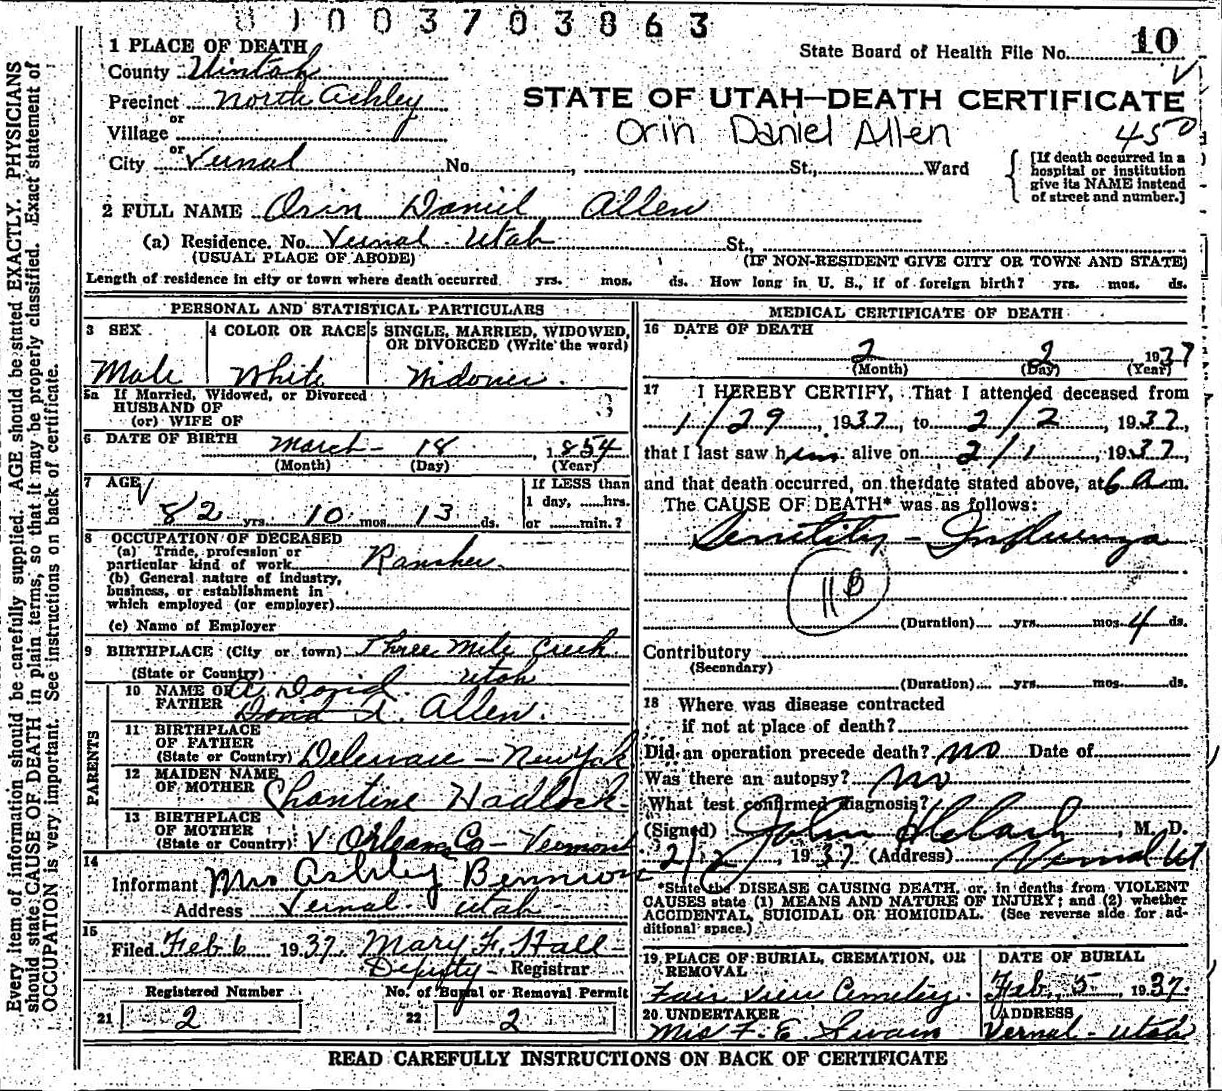 8 1 0 0 3 7 0 3 8 6 3
State Board of Health File No. 10
1 PLACE OF DEATH
County Uintah
Precinct North Ashley
STATE OF UTAH—DEATH CERTIFICATE
or
Village
Orin Daniel Allen
450
or
City Vernal No. , St., Ward
[If death occurred in a
hospital or institution
give its NAME instead
of street and number.]
2 FULL NAME Orin Daniel Allen
(a) Residence. No. Vernal Utah St.,
(USUAL PLACE OF ABODE) (IF NON-RESIDENT GIVE CITY OR TOWN AND STATE)
Length of residence in city or town where death occurred yrs. mos. ds. How long in U. S., if of foreign birth? yrs. mos. ds.
PERSONAL AND STATISTICAL PARTICULARS
3 SEX
Male
4 COLOR OR RACE
White
5 SINGLE, MARRIED, WIDOWED,
OR DIVORCED (Write the word)
Widower.
5a If Married, Widowed, or Divorced
HUSBAND OF
(or) WIFE OF
6 DATE OF BIRTH March - 18, 1854
(Month) (Day) (Year)
7 AGE
82 yrs. 10 mos. 13 ds.
If LESS than
1 day, hrs.
or min.?
8 OCCUPATION OF DECEASED
(a) Trade, profession or
particular kind of work Rancher
(b) General nature of industry,
business, or establishment in
which employed (or employer)
(c) Name of Employer
9 BIRTHPLACE (City or town) Three Mile Creek
(State or Country) Utah
PARENTS
10 NAME OF
FATHER David A. Allen.
11 BIRTHPLACE
OF FATHER
(State or Country) Deleware - New York
12 MAIDEN NAME
OF MOTHER Chastine Hadlock
13 BIRTHPLACE
OF MOTHER
(State or Country) Orleans Co - Vermont
14
Informant Mrs Ashley Bennion
Address Vernal Utah
15
Filed Feb 6 1937 Mary F. Hall
Deputy Registrar
Registered Number
21 2
No. of Burial or Removal Permit
22 2
MEDICAL CERTIFICATE OF DEATH
16 DATE OF DEATH
2 2 1937
(Month) (Day) (Year)
17 I HEREBY CERTIFY, That I attended deceased from
1/29, 1937, to 2/2, 1937,
that I last saw him alive on 2/1, 1937,
and that death occurred, on the date stated above, at 6 a m.
The CAUSE OF DEATH* was as follows:
Senility - Influenza
11B
(Duration) yrs. mos. 4 ds.
Contributory
(Secondary)
(Duration) yrs. mos. ds.
18 Where was disease contracted
if not at place of death?
Did an operation precede death? no Date of
Was there an autopsy? no
What test confirmed diagnosis?
(Signed) John, M. D.
2/2, 1937 (Address) Vernal Ut
*State the DISEASE CAUSING DEATH, or, in deaths from VIOLENT
CAUSES state (1) MEANS AND NATURE OF INJURY; and (2) whether
ACCIDENTAL, SUICIDAL OR HOMICIDAL. (See reverse side for ad-
ditional space.)
19 PLACE OF BURIAL, CREMATION, OR
REMOVAL
Fair View Cemetery
DATE OF BURIAL
Feb. 5 1937
20 UNDERTAKER
Mrs F. E. Swain
ADDRESS
Vernal - Utah
READ CAREFULLY INSTRUCTIONS ON BACK OF CERTIFICATE
Every item of information should be carefully supplied. AGE should be stated EXACTLY. PHYSICIANS
should state CAUSE OF DEATH in plain terms, so that it may be properly classified. Exact statement of
OCCUPATION is very important. See instructions on back of certificate.